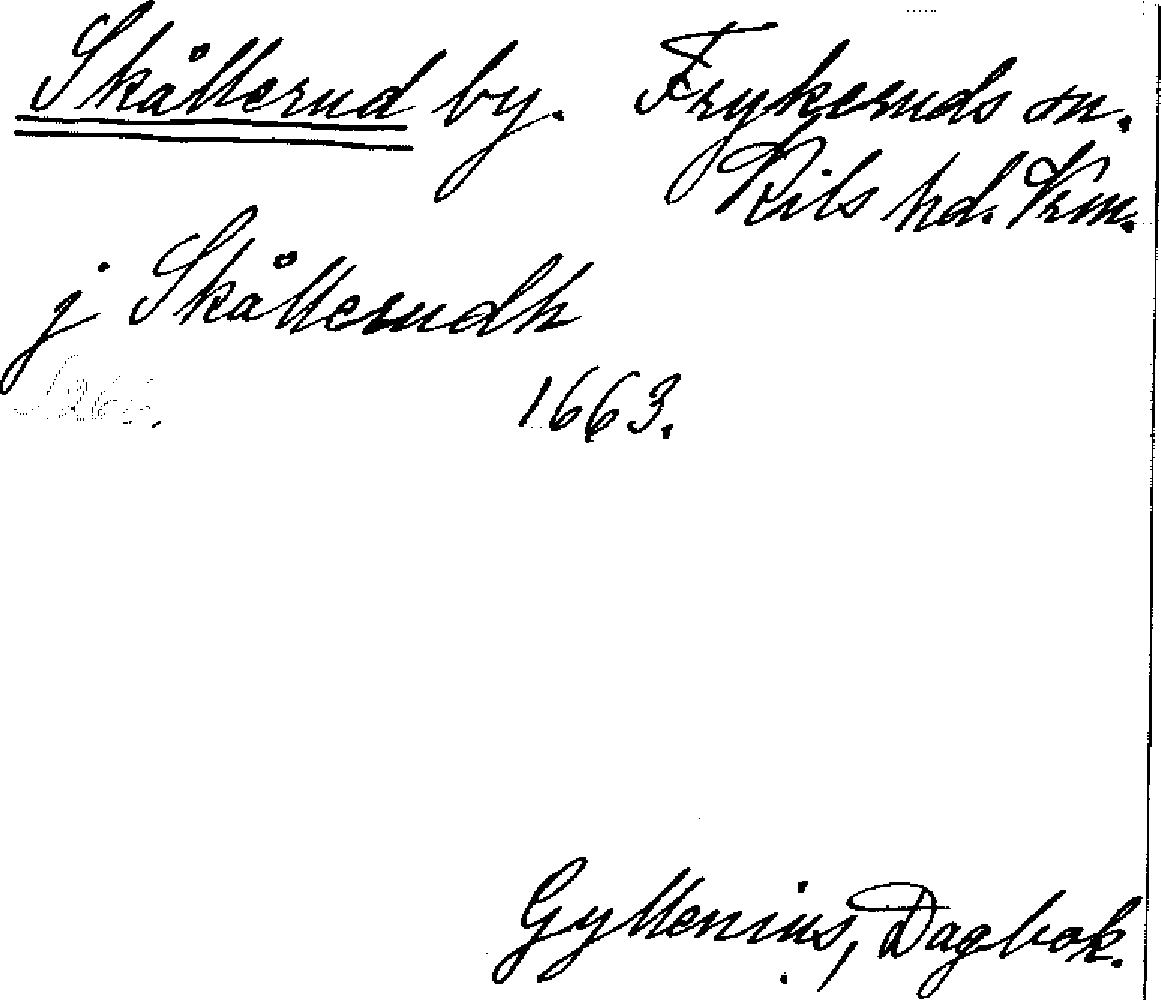 Skållerud by. Frykeruds sn.
Kils hd. Vrm.
j Skållerudh
1663.
Gyllenius, Dagbok.